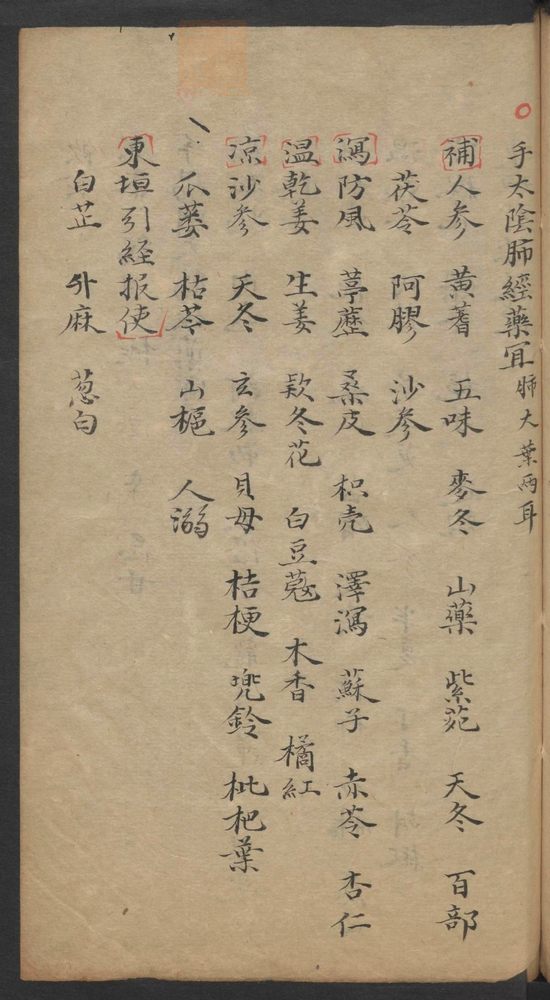 手太陰肺經藥宜 肺大葉兩耳
補人参 黄蓍 五味 麥冬 山藥 紫菀 天冬 百部
茯苓 阿膠 沙参
瀉防風 葶藶 桑皮 枳壳 澤瀉 蘇子 赤苓 杏仁
温乾姜 生姜 款冬花 白豆蔻 木香 橘紅
凉沙参 天冬 玄参 貝母 桔梗 兜鈴 枇杷葉
瓜蒌 枯苓 山梔 人溺
東垣引経报使
白芷 升麻 葱白